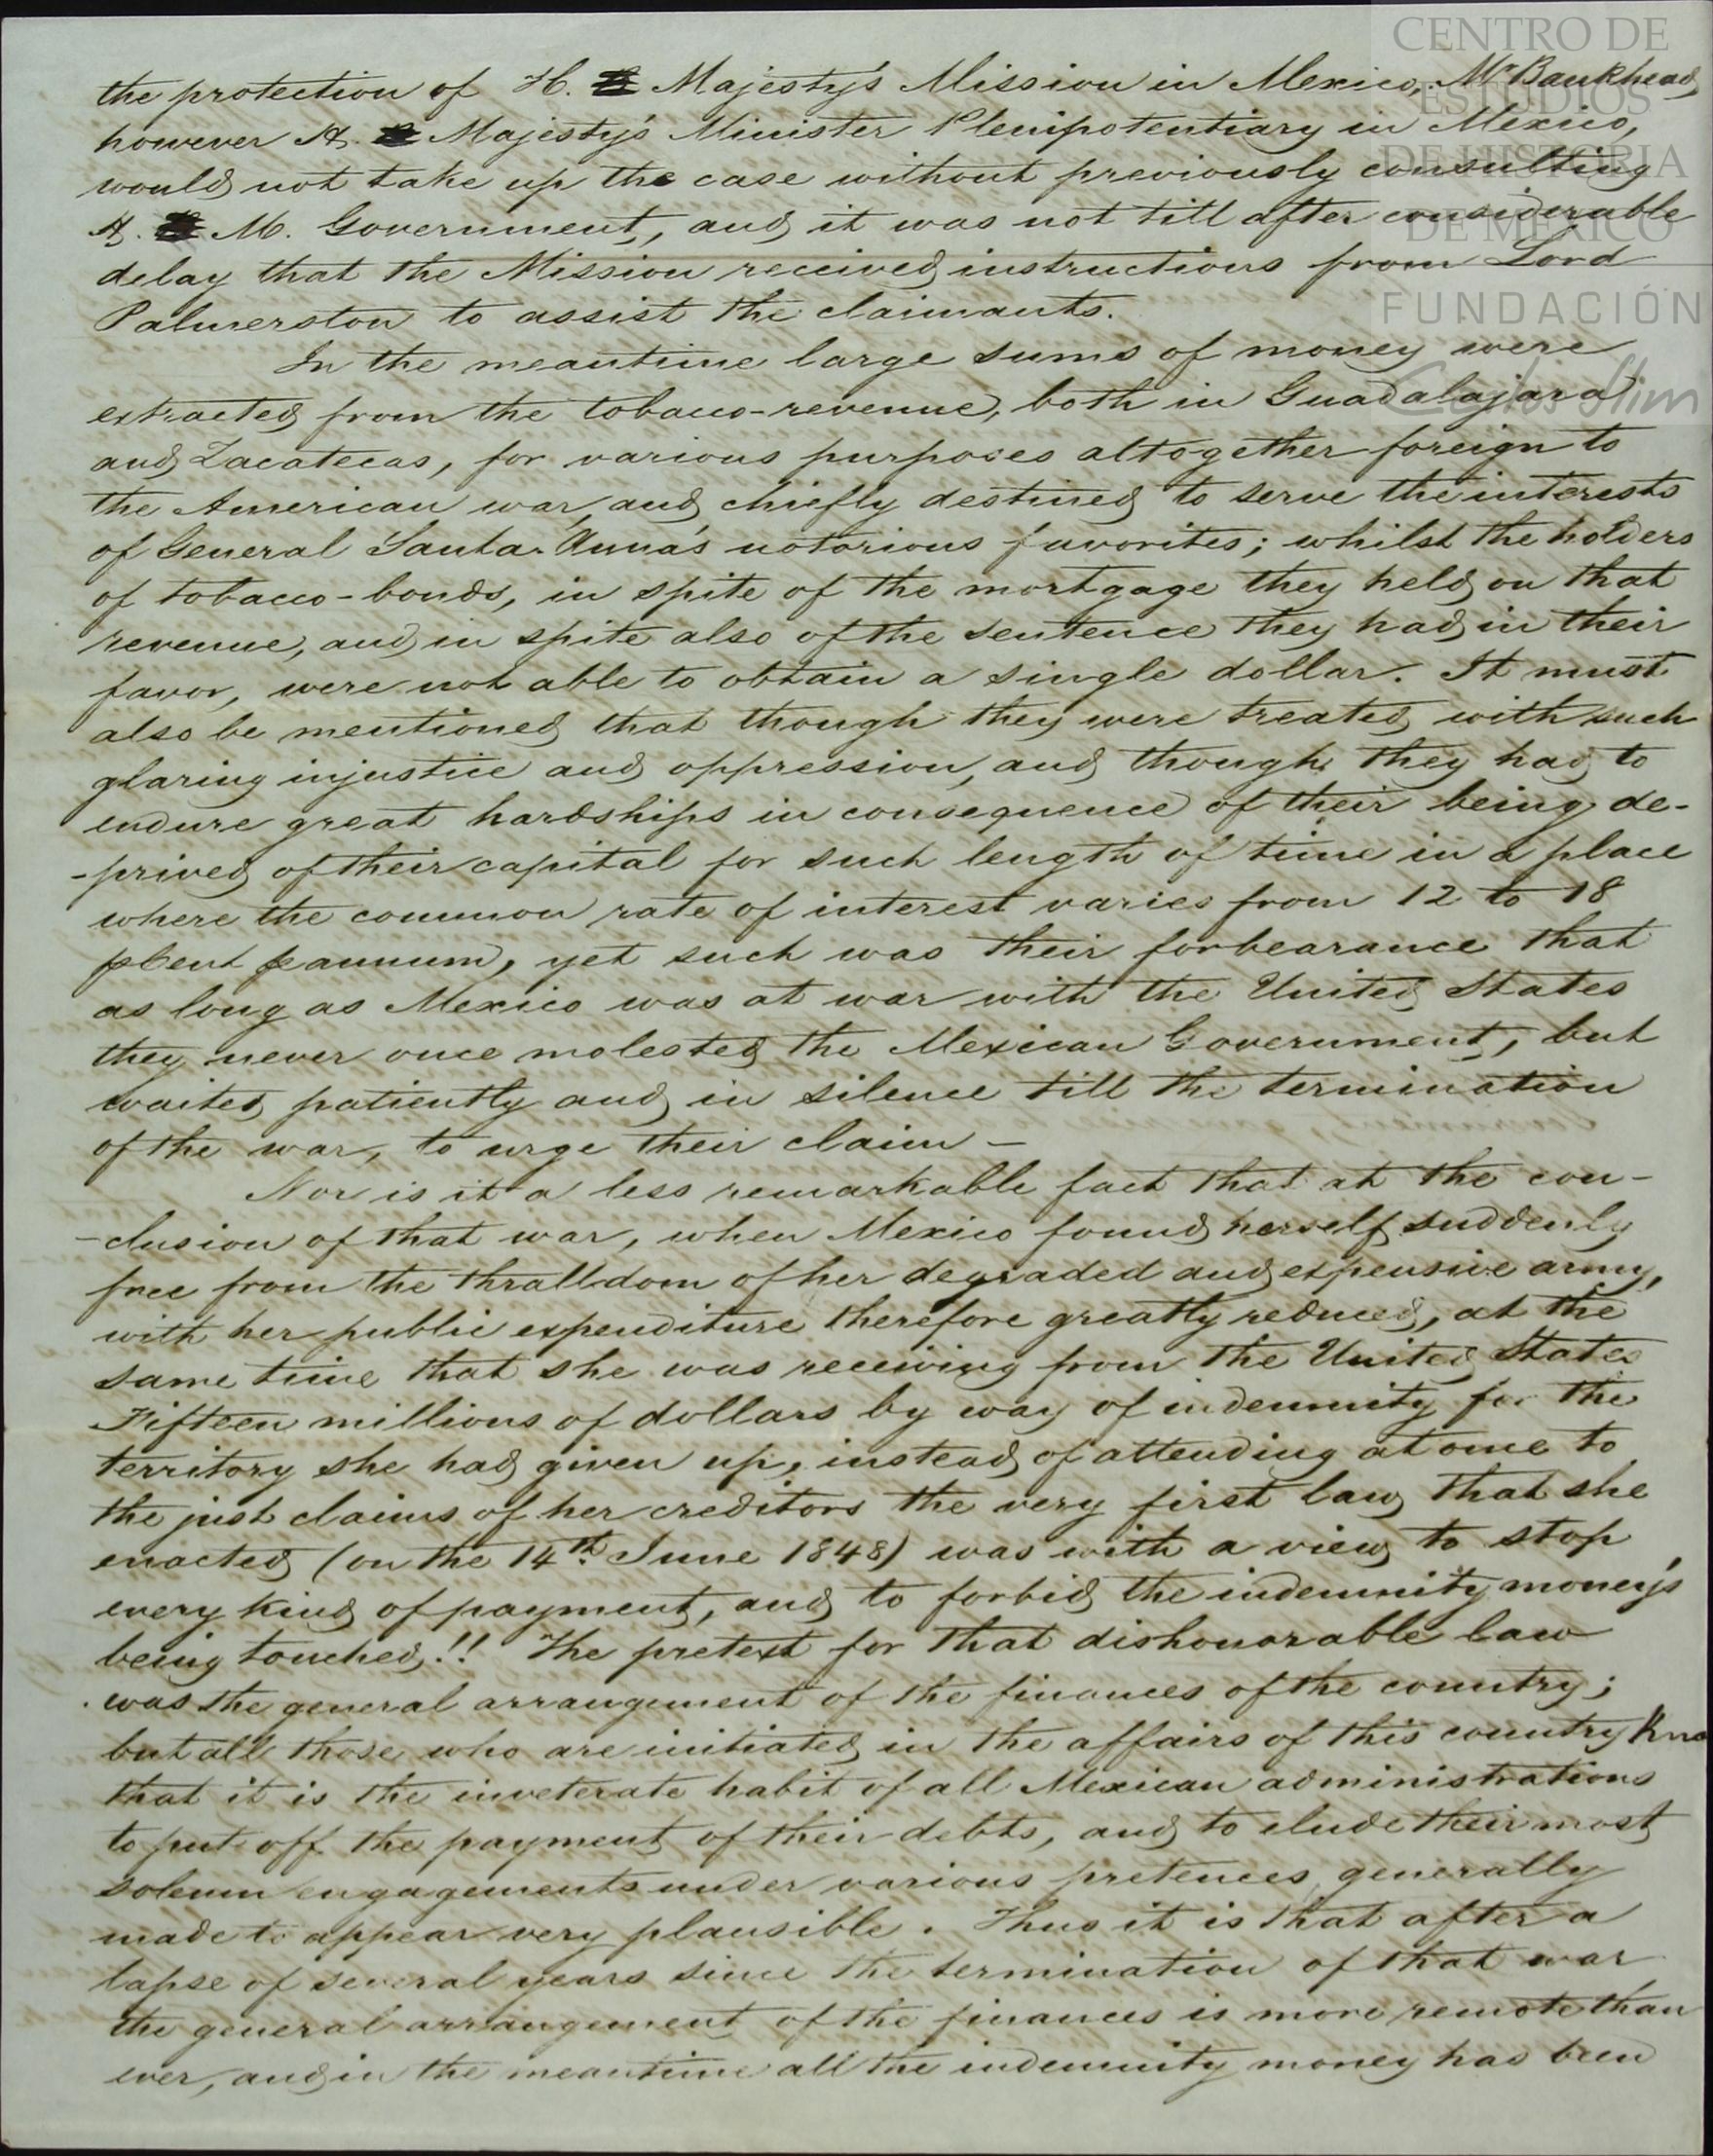 CENTRO DE
ESTUDIOS
DE HISTORIA
DE MÉXICO
FUNDACIÓN
Carlos Slim
the protection of H. Majesty's Mission in Mexico, Mr Bankhead,
however H. Majesty's Minister Plenipotentiary in Mexico,
would not take up the case without previously consulting
H. M. Government, and it was not till after considerable
delay that the Mission received instructions from Lord
Palmerston to assist the claimants.
In the meantime large sums of money were
extracted from the tobacco-revenue, both in Guadalajara
and Zacatecas, for various purposes altogether foreign to
the American war, and chiefly destined to serve the interests
of General Santa-Anna's notorious favorites; whilst the holders
of tobacco-bonds, in spite of the mortgage they held on that
revenue, and in spite also of the sentence they had in their
favor, were not able to obtain a single dollar. It must
also be mentioned that though they were treated with such
glaring injustice and oppression, and though they had to
endure great hardships in consequence of their being de-
-prived of their capital for such length of time in a place
where the common rate of interest varies from 12 to 18
pCent p annum, yet such was their forbearance that
as long as Mexico was at war with the United States
they never once molested the Mexican Government, but
waited patiently and in silence till the termination
of the war, to urge their claim —
Nor is it a less remarkable fact that at the con-
-clusion of that war, when Mexico found herself suddenly
free from the thralldom of her degraded and expensive army,
with her public expenditure therefore greatly reduced, at the
same time that she was receiving from the United States
Fifteen millions of dollars by way of indemnity for the
territory she had given up, instead of attending at once to
the just claims of her creditors the very first law that she
enacted (on the 14th June 1848) was with a view to stop
every kind of payment, and to forbid the indemnity money's
being touched!! The pretext for that dishonorable law
was the general arrangement of the finances of the country;
but all those who are initiated in the affairs of this country kno
that it is the inveterate habit of all Mexican administrations
to put off the payment of their debts, and to elude their most
solemn engagements under various pretences generally
made to appear very plausible. Thus it is that after a
lapse of several years since the termination of that war
the general arrangement of the finances is more remote than
ever, and in the meantime all the indemnity money has been